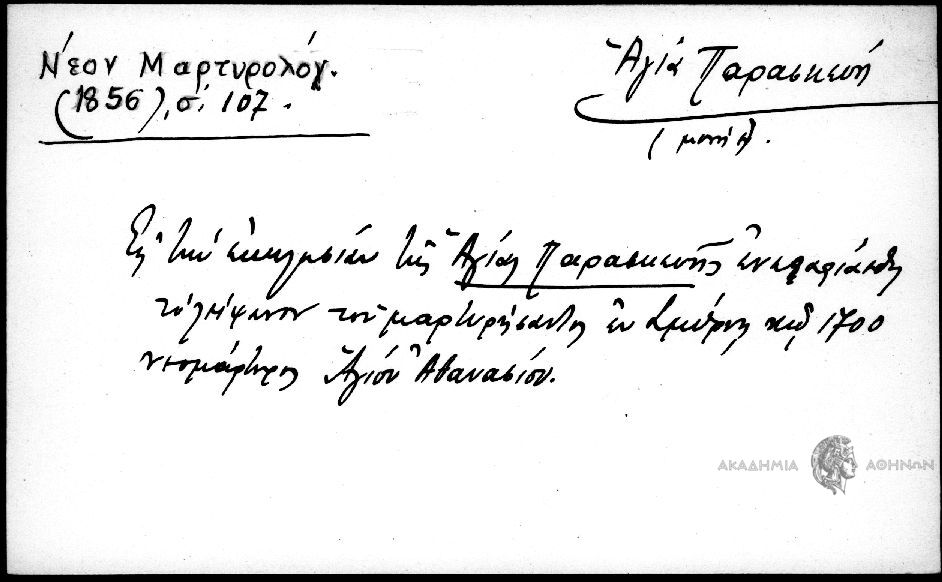 Νέον Μαρτυρολόγ.
(1856), σ. 107.
Ἁγία Παρασκευή
(μονή).
Εἰς τὴν ἐκκλησίαν τῆς Ἁγίας Παρασκευῆς ἐνεταφιάσθη
τὸ λείψανον τοῦ μαρτυρήσαντος ἐν Σμύρνῃ τῷ 1700
νεομάρτυρος Ἁγίου Ἀθανασίου.
ΑΚΑΔΗΜΙΑ ΑΘΗΝΩΝ